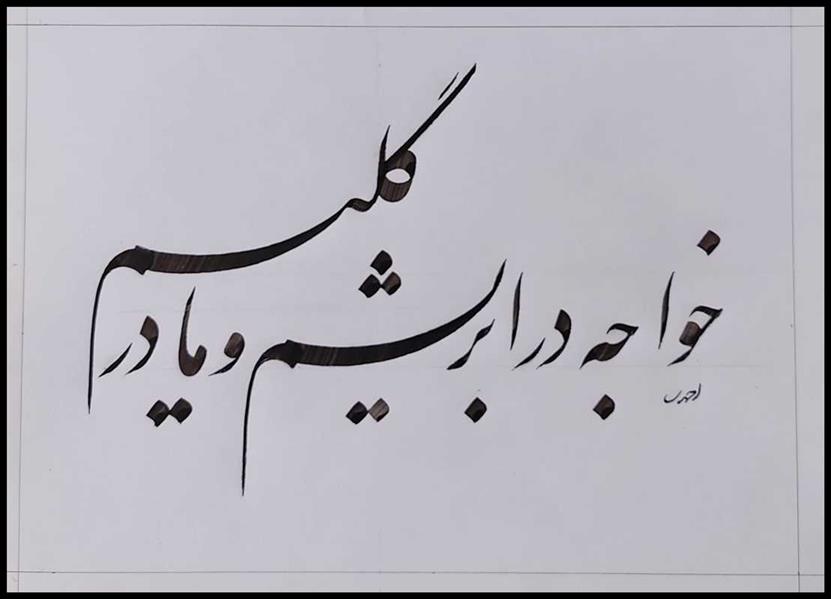 خواجه در ابریشم و ما در گلیم